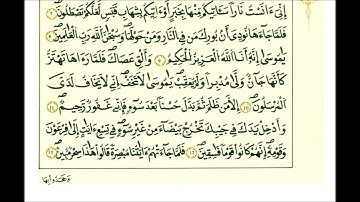 إِنِّي ءَانَسْتُ نَارًا سَـَٔاتِيكُم مِّنْهَا بِخَبَرٍ أَوْ ءَاتِيكُم بِشِهَابٍ قَبَسٍ لَّعَلَّكُمْ تَصْطَلُونَ ٧
فَلَمَّا جَاءَهَا نُودِيَ أَن بُورِكَ مَن فِي النَّارِ وَمَنْ حَوْلَهَا وَسُبْحَٰنَ اللَّهِ رَبِّ الْعَٰلَمِينَ ٨
يَٰمُوسَىٰ إِنَّهُ أَنَا اللَّهُ الْعَزِيزُ الْحَكِيمُ ٩ وَأَلْقِ عَصَاكَ فَلَمَّا رَءَاهَا تَهْتَزُّ
كَأَنَّهَا جَانٌّ وَلَّىٰ مُدْبِرًا وَلَمْ يُعَقِّبْ يَٰمُوسَىٰ لَا تَخَفْ إِنِّي لَا يَخَافُ لَدَيَّ
الْمُرْسَلُونَ ١٠ إِلَّا مَن ظَلَمَ ثُمَّ بَدَّلَ حُسْنًا بَعْدَ سُوءٍ فَإِنِّي غَفُورٌ رَّحِيمٌ ١١
وَأَدْخِلْ يَدَكَ فِي جَيْبِكَ تَخْرُجْ بَيْضَاءَ مِنْ غَيْرِ سُوءٍ فِي تِسْعِ ءَايَٰتٍ إِلَىٰ فِرْعَوْنَ
وَقَوْمِهِ إِنَّهُمْ كَانُوا قَوْمًا فَٰسِقِينَ ١٢ فَلَمَّا جَاءَتْهُمْ ءَايَٰتُنَا مُبْصِرَةً قَالُوا هَٰذَا سِحْرٌ مُّبِينٌ ١٣
وَجَحَدُوا بِهَا